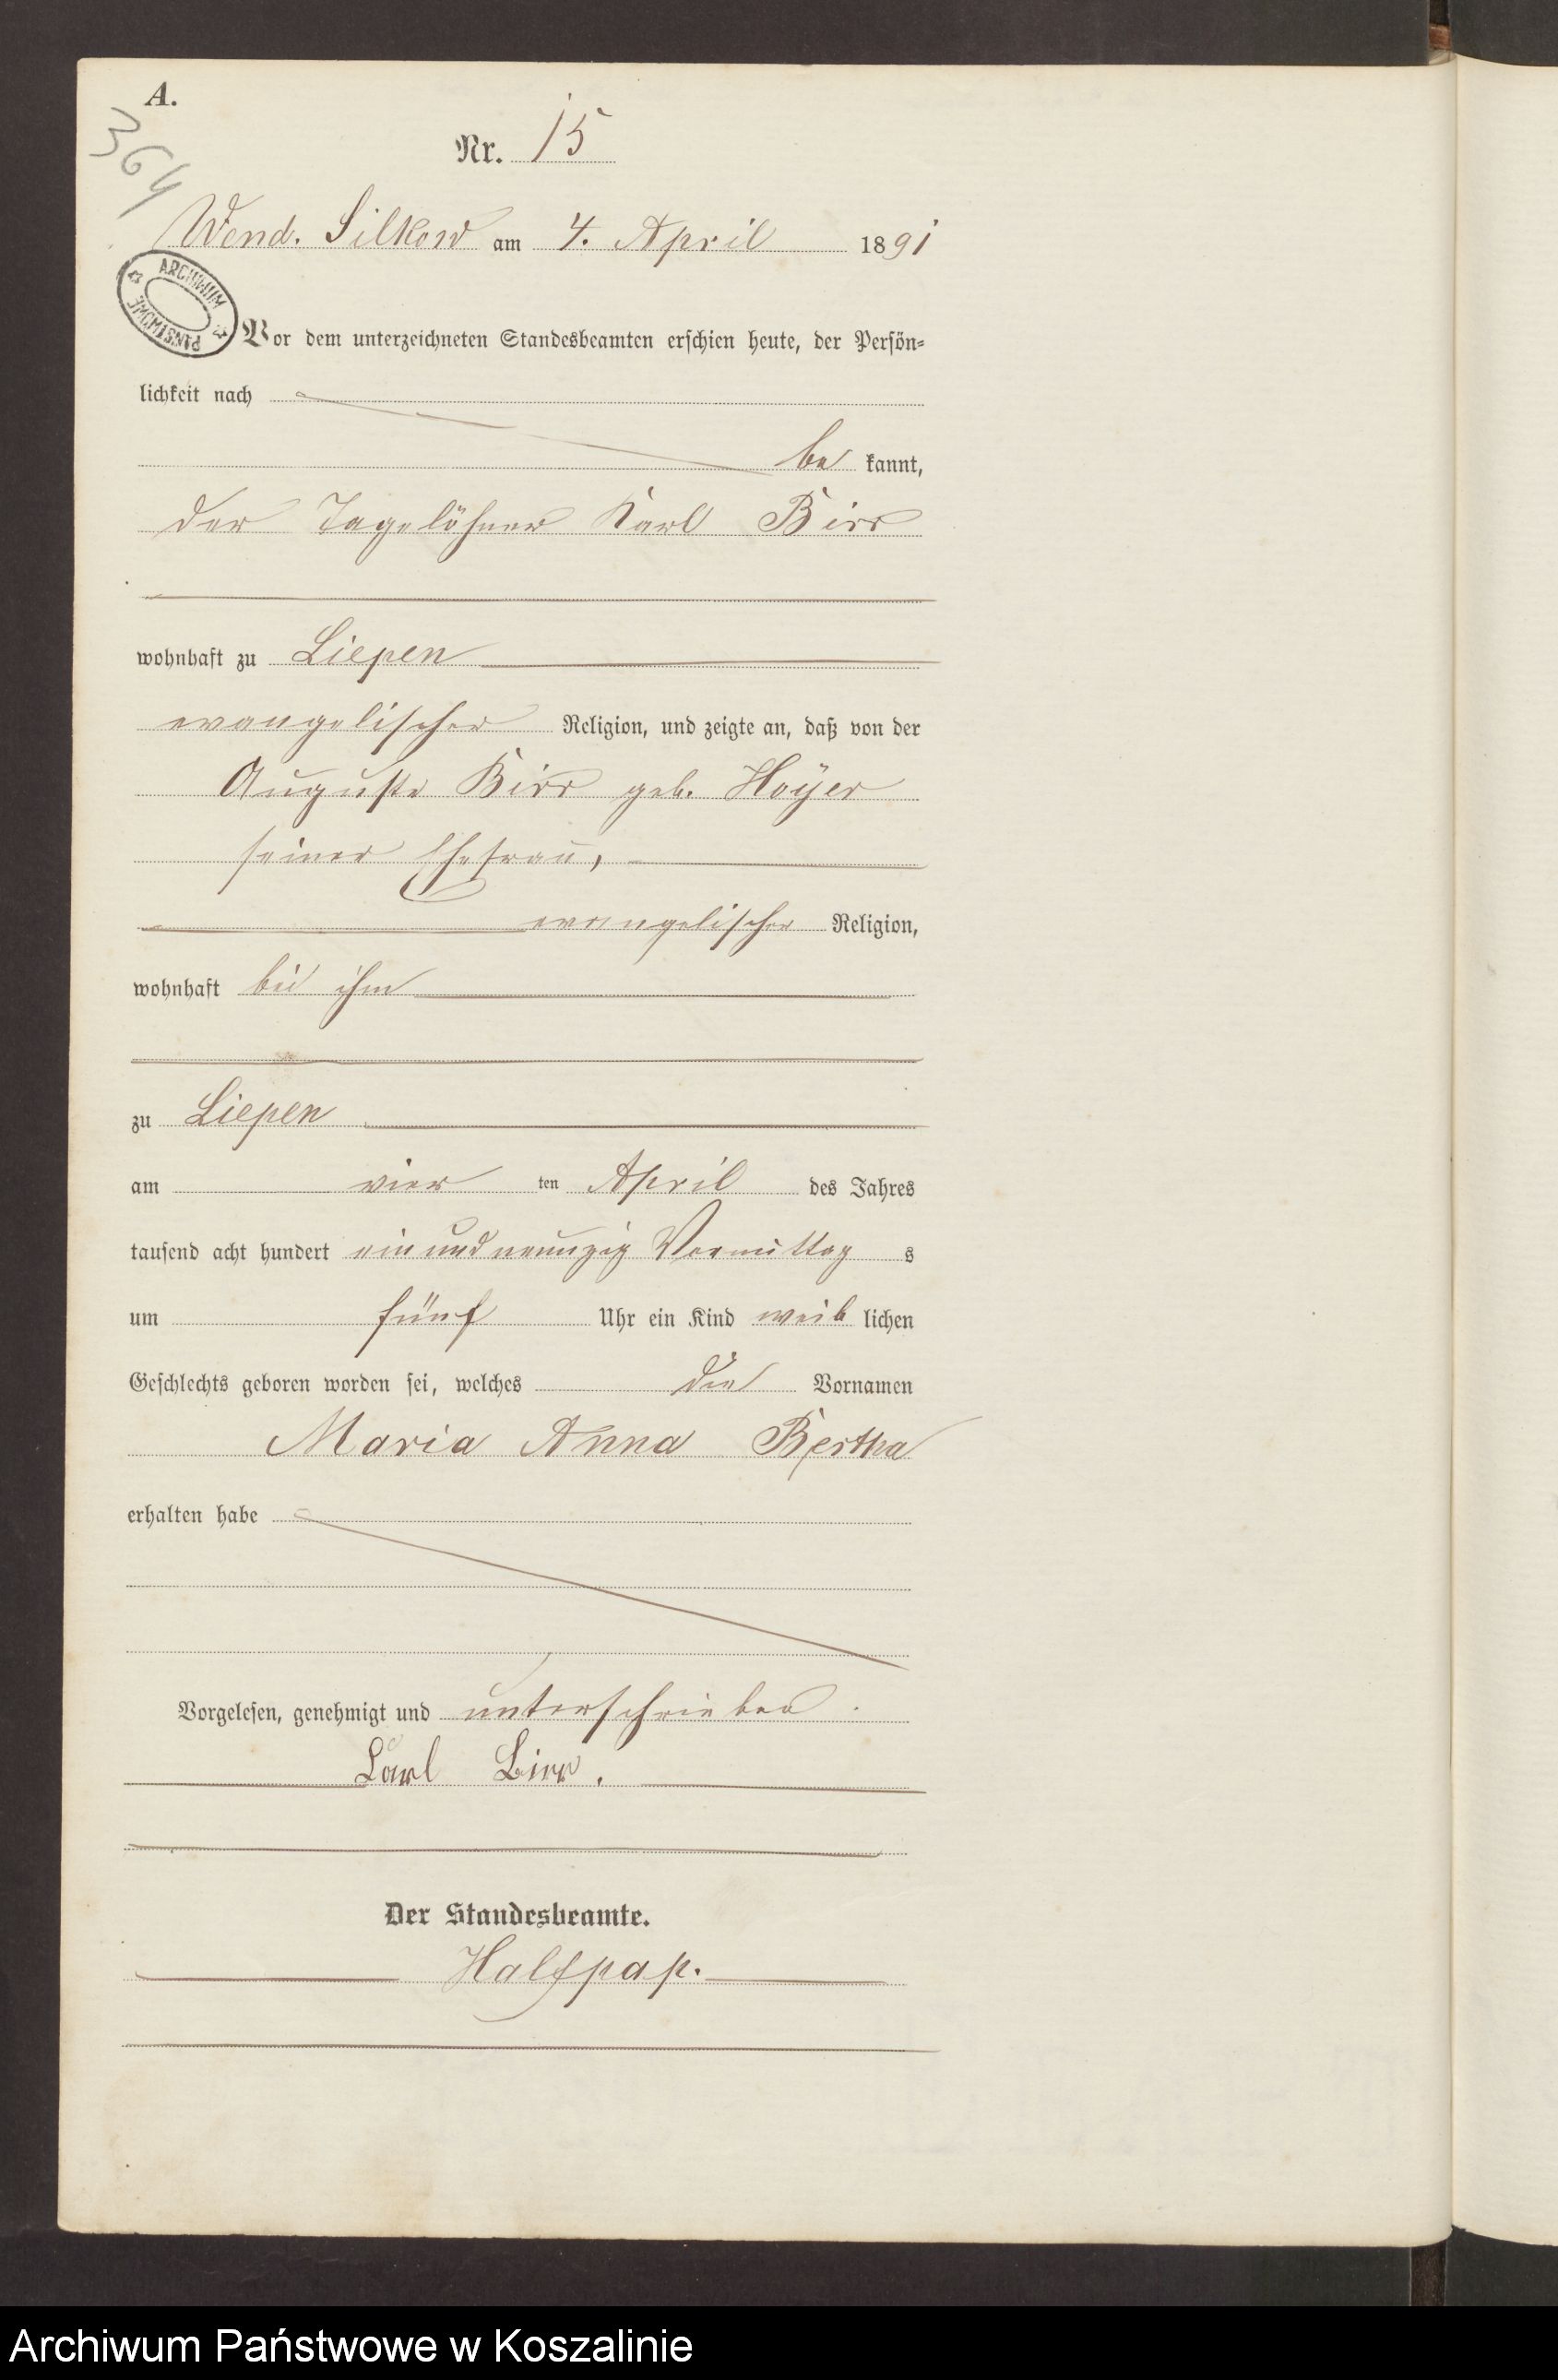 A.
364
Nr. 15
Wend. Silkow am 4. April 1891
ARCHIWUM PAŃSTWOWE
Vor dem unterzeichneten Standesbeamten erschien heute, der Persön-
lichkeit nach
be kannt,
der Tagelöhner Karl Birr
wohnhaft zu Liepen
evangelischer Religion, und zeigte an, daß von der
Auguste Birr geb. Hoÿer
seiner Ehefrau,
evangelischer Religion,
wohnhaft bei ihm
zu Liepen
am vier ten April des Jahres
tausend acht hundert ein und neunzig Vormittag s
um fünf Uhr ein Kind weib lichen
Geschlechts geboren worden sei, welches die Vornamen
Maria Anna Bertha
erhalten habe
Vorgelesen, genehmigt und unterschrieben.
Karl Birr.
Der Standesbeamte.
Halfpap.
Archiwum Państwowe w Koszalinie